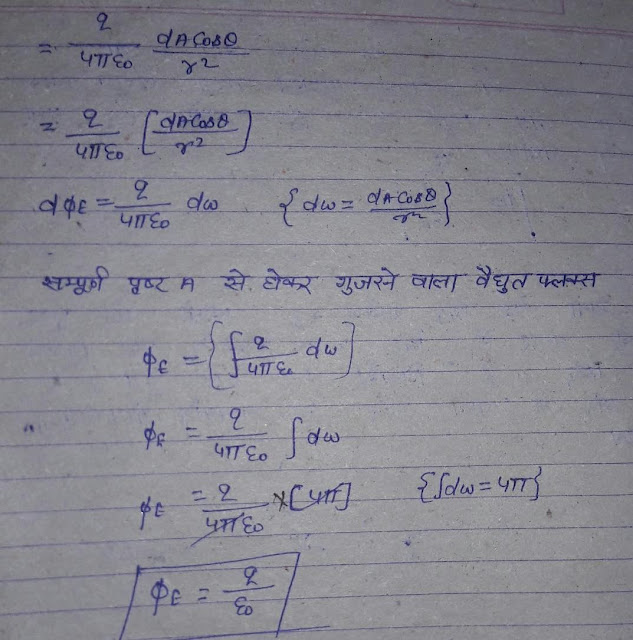 = q/4πε₀ dA Cosθ/r²
= q/4πε₀ [dA Cosθ/r²]
dφE = q/4πε₀ dω {dω = dA Cosθ/r²}
सम्पूर्ण पृष्ट A से होकर गुजरने वाला वैधुत फ्लक्स
φE = {∫ q/4πε₀ dω}
φE = q/4πε₀ ∫dω
φE = q/4πε₀ × [4π] {∫dω = 4π}
φE = q/ε₀